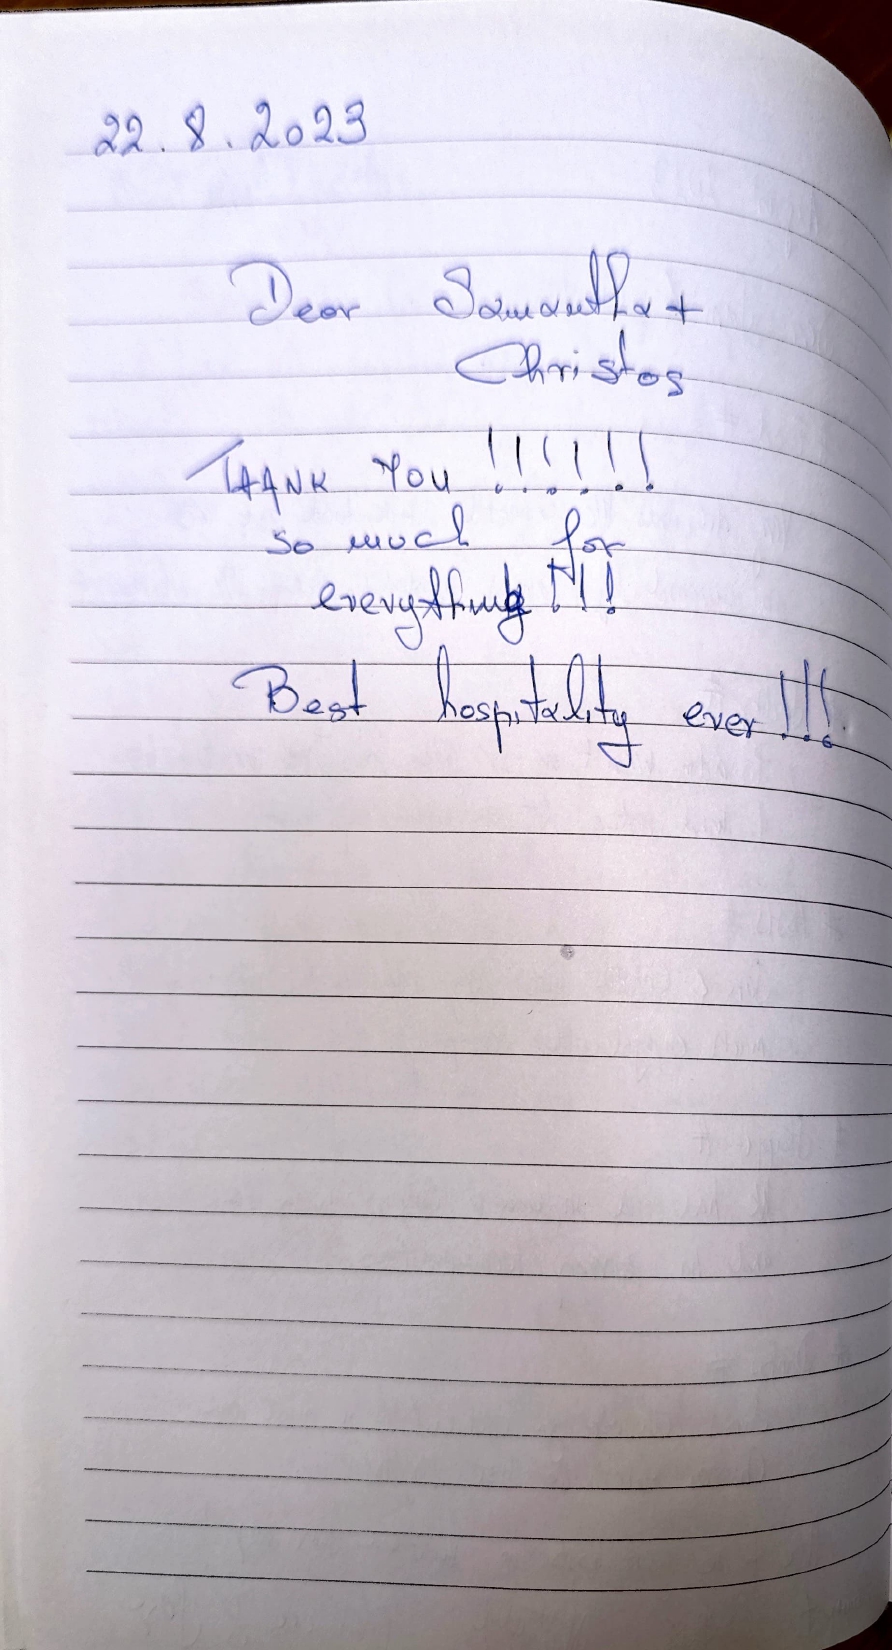 22.8.2023
Dear Samantha +
Christos
THANK YOU !!!!!!
so much for
everything!!!
Best hospitality ever!!!